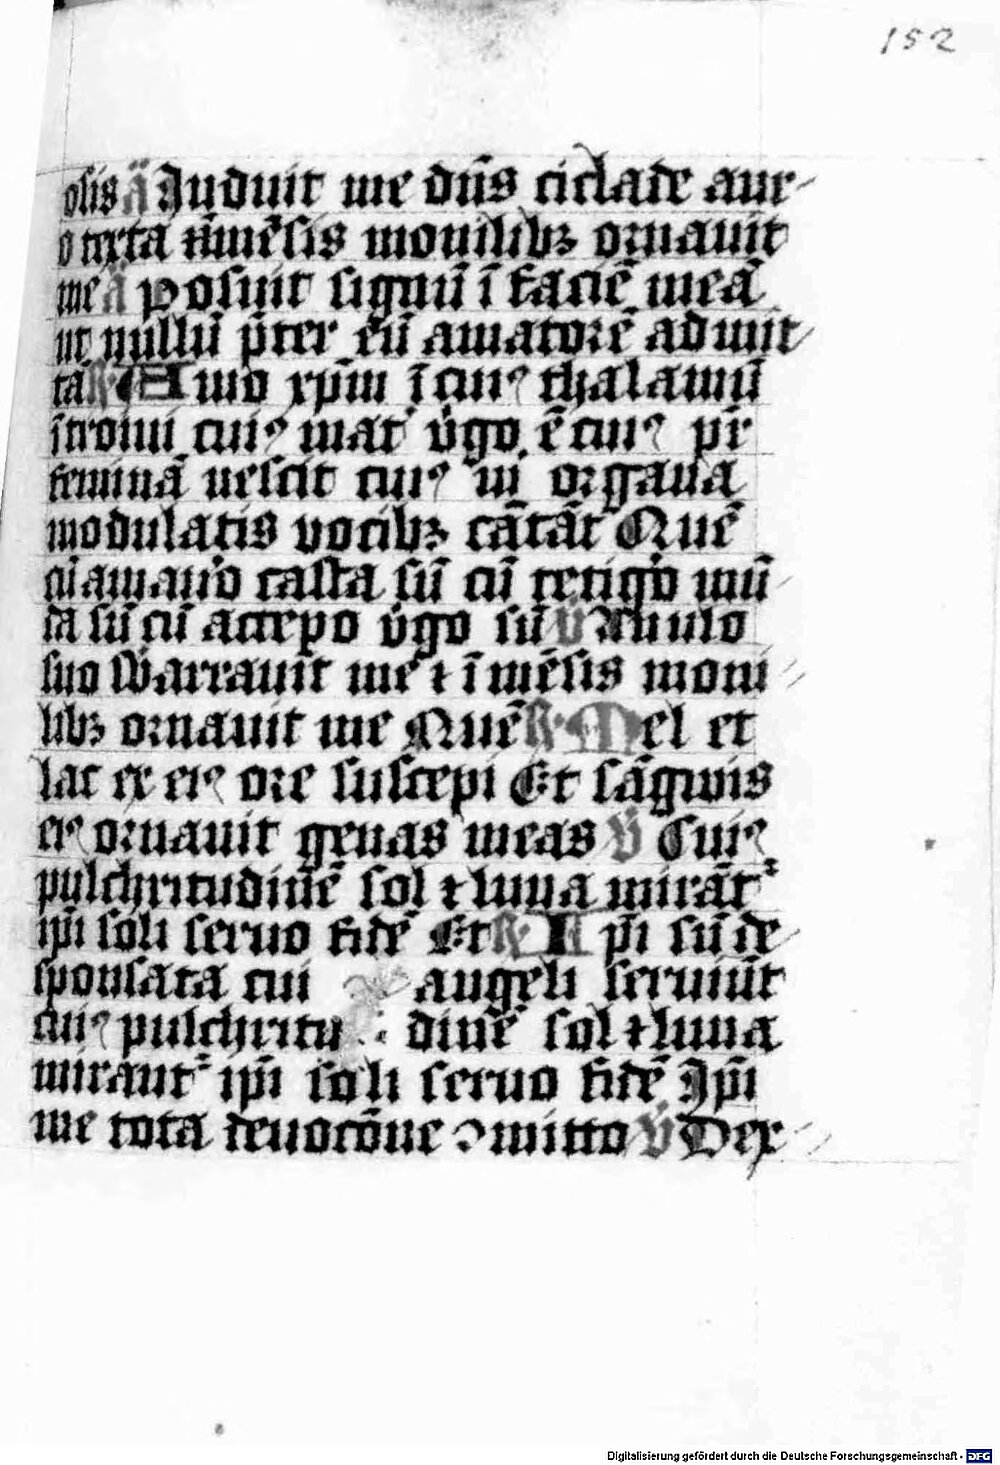 152
osis a Induit me dn̄s ciclade aur-
o texta ⁊ īmēsis monilibꝫ ornauit
me a Posuit signū ī faciē meā
ut nullū p̄ter eū amatorē admit-
tā R Amo xp̄m ī cuiꝰ thalamū
ītroiui cuiꝰ mat̉ v̉go ē cuiꝰ pr̄
feminā nescit cuiꝰ m̉ organa
modulatis vocibꝫ cātāt Quē
cū amaủo casta sū cū tetig̉o mū-
da sū cū accepo v̉go sū V Anulo
suo Warrauit me ⁊ īmēsis moni-
libꝫ ornauit me Quē R Mel et
lac ex eiꝰ ore suscepi Et sāgwis
eiꝰ ornauit genas meas V Cuiꝰ
pulchritudinē sol ⁊ luna mirāt᷑
ip̄i soli seruo fidē Et R Ip̄i sū de-
sponsata cui angeli seruiūt
cuiꝰ pulchritu dinē sol ⁊ luna
mirant᷑ ip̄i soli seruo fidē Ip̄i
me tota deuotōne ꝯmitto V Dex-
Digitalisierung gefördert durch die Deutsche Forschungsgemeinschaft - DFG